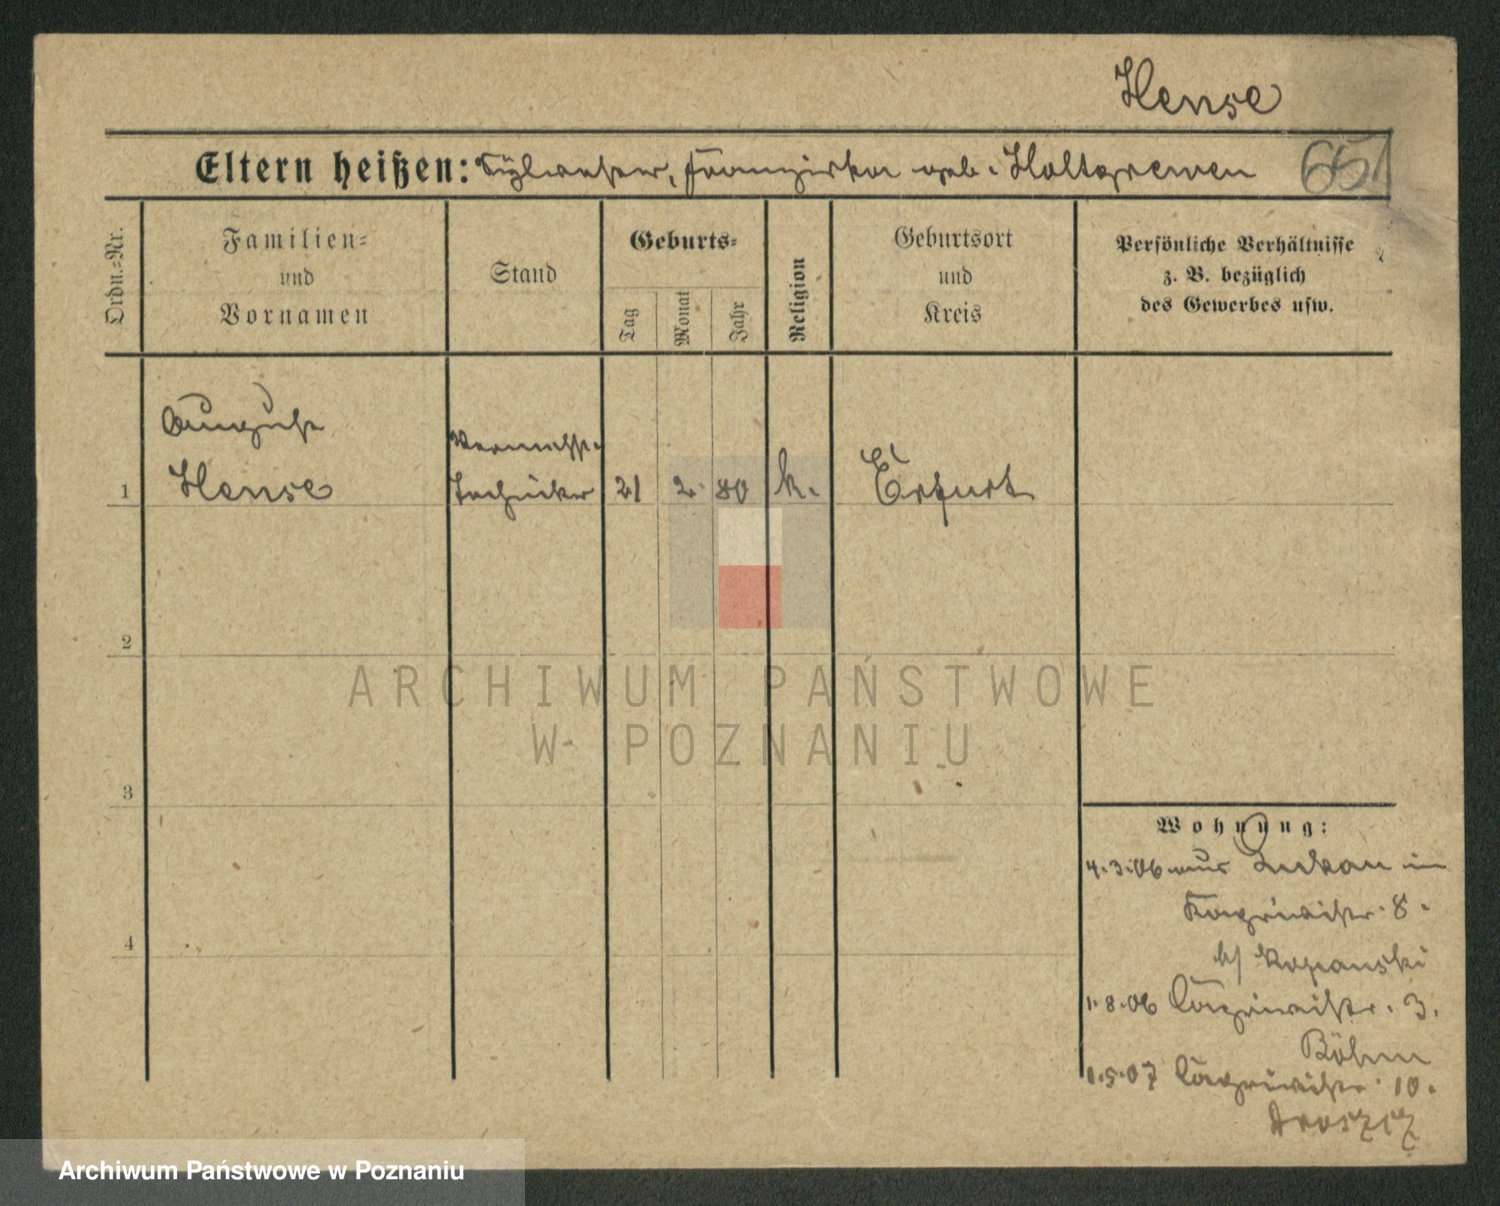 Hense
Eltern heißen: Sylvester, Franziska geb. Holtgrewen
651
Ordn.-Nr.
Familien-
und
Vornamen
Stand
Geburts-
Tag
Monat
Jahr
Religion
Geburtsort
und
Kreis
Persönliche Verhältnisse
z. B. bezüglich
des Gewerbes usw.
August
Hense
Vermess.-
Techniker
1
21
2.
80
k.
Erfurt
2
3
4
Wohnung:
4.3.06 aus Luckau in
8.
b/ Kopanski
1.8.06 3.
Böhm
1.5.07 10.
ARCHIWUM PAŃSTWOWE
W POZNANIU
Archiwum Państwowe w Poznaniu